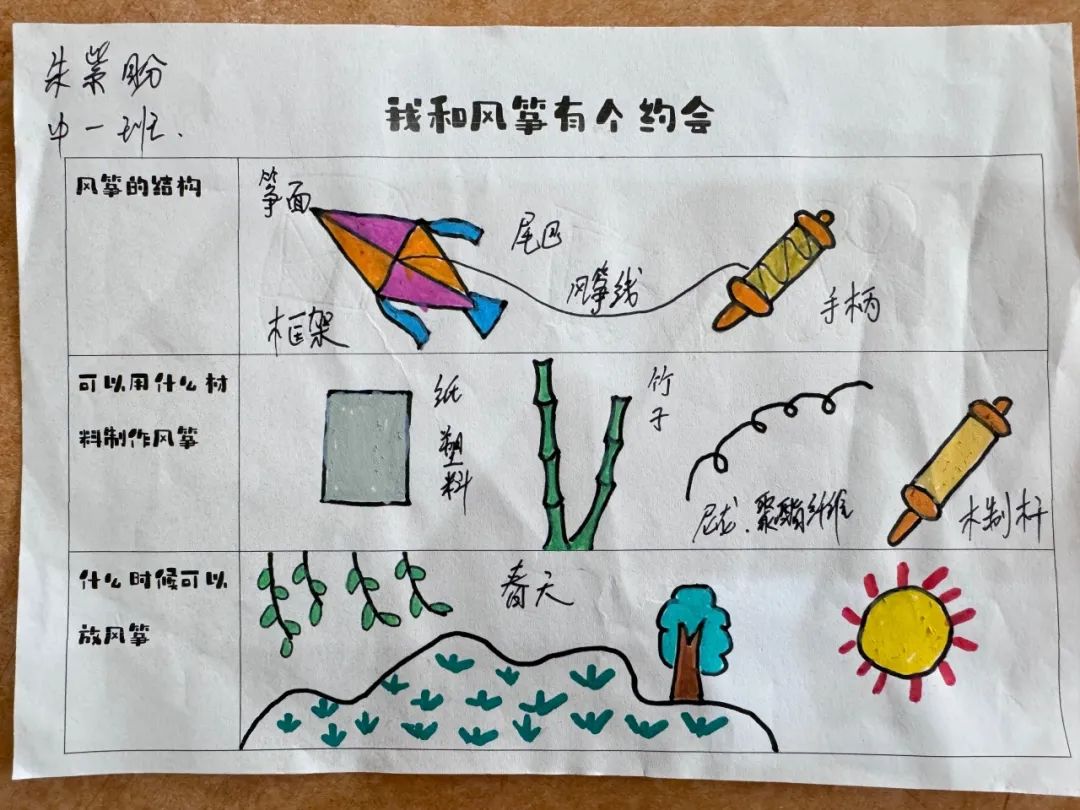 朱紫盼
中一班.
我和风筝有个约会
风筝的结构
筝面
尾巴
风筝线
手柄
框架
可以用什么材
料制作风筝
纸
塑料
竹子
尼龙.聚酯纤维
木制杆
什么时候可以
放风筝
春天